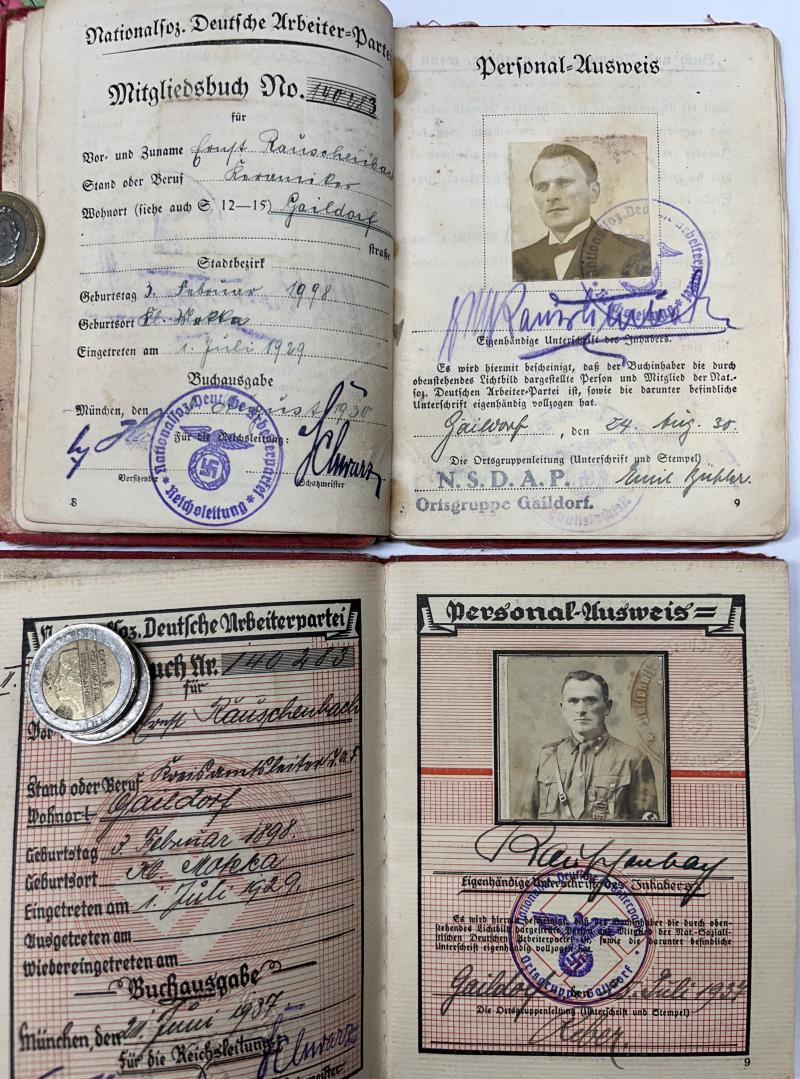 Nationalsoz. Deutsche Arbeiter-Partei
Mitgliedsbuch No. 140283
für
Vor- und Zuname Ernst Rauschenbach
Stand oder Beruf Keramiker
Wohnort (siehe auch S. 12—15) Gaildorf
straße
Stadtbezirk
Geburtstag 3. Februar 1998
Geburtsort Kl. Mokka
Eingetreten am 1. Juli 1929
Buchausgabe
München, den August 1930
Für die Reichsleitung:
Schwarz
Vorsitzender Schatzmeister
Nationalsoz. Deutsche Arbeiterpartei
* Reichsleitung *
8
Personal-Ausweis
Nationalsoz. Deutsche Arbeiterpartei
Eigenhändige Unterschrift des Inhabers.
Es wird hiermit bescheinigt, daß der Buchinhaber die durch
obenstehendes Lichtbild dargestellte Person und Mitglied der Nat.-
soz. Deutschen Arbeiter-Partei ist, sowie die darunter befindliche
Unterschrift eigenhändig vollzogen hat.
Gaildorf, den 24. Aug. 30.
Die Ortsgruppenleitung (Unterschrift und Stempel)
N.S.D.A.P. Emil Bühler.
Ortsgruppe Gaildorf.
9
Deutsche Arbeiterpartei
Nr. 140283
für
Ernst Rauschenbach
Stand oder Beruf Kreisamtsleiter
Wohnort Gaildorf
Geburtstag 3. Februar 1898.
Geburtsort Kl. Mokka
Eingetreten am 1. Juli 1929.
Ausgetreten am
Wiedereingetreten am
Buchausgabe
München, den 21. Juni 1937
Für die Reichsleitung:
Schwarz
Personal-Ausweis
Rauschenbach
Eigenhändige Unterschrift des Inhabers
Es wird hiermit bescheinigt, daß der Buchinhaber die durch oben-
stehendes Lichtbild dargestellte Person und Mitglied der Nat.-Sozia-
listischen Deutschen Arbeiterpartei ist, sowie die darunter befindliche
Unterschrift eigenhändig vollzogen hat.
Gaildorf Juli 1937
Die Ortsgruppenleitung (Unterschrift und Stempel)
9